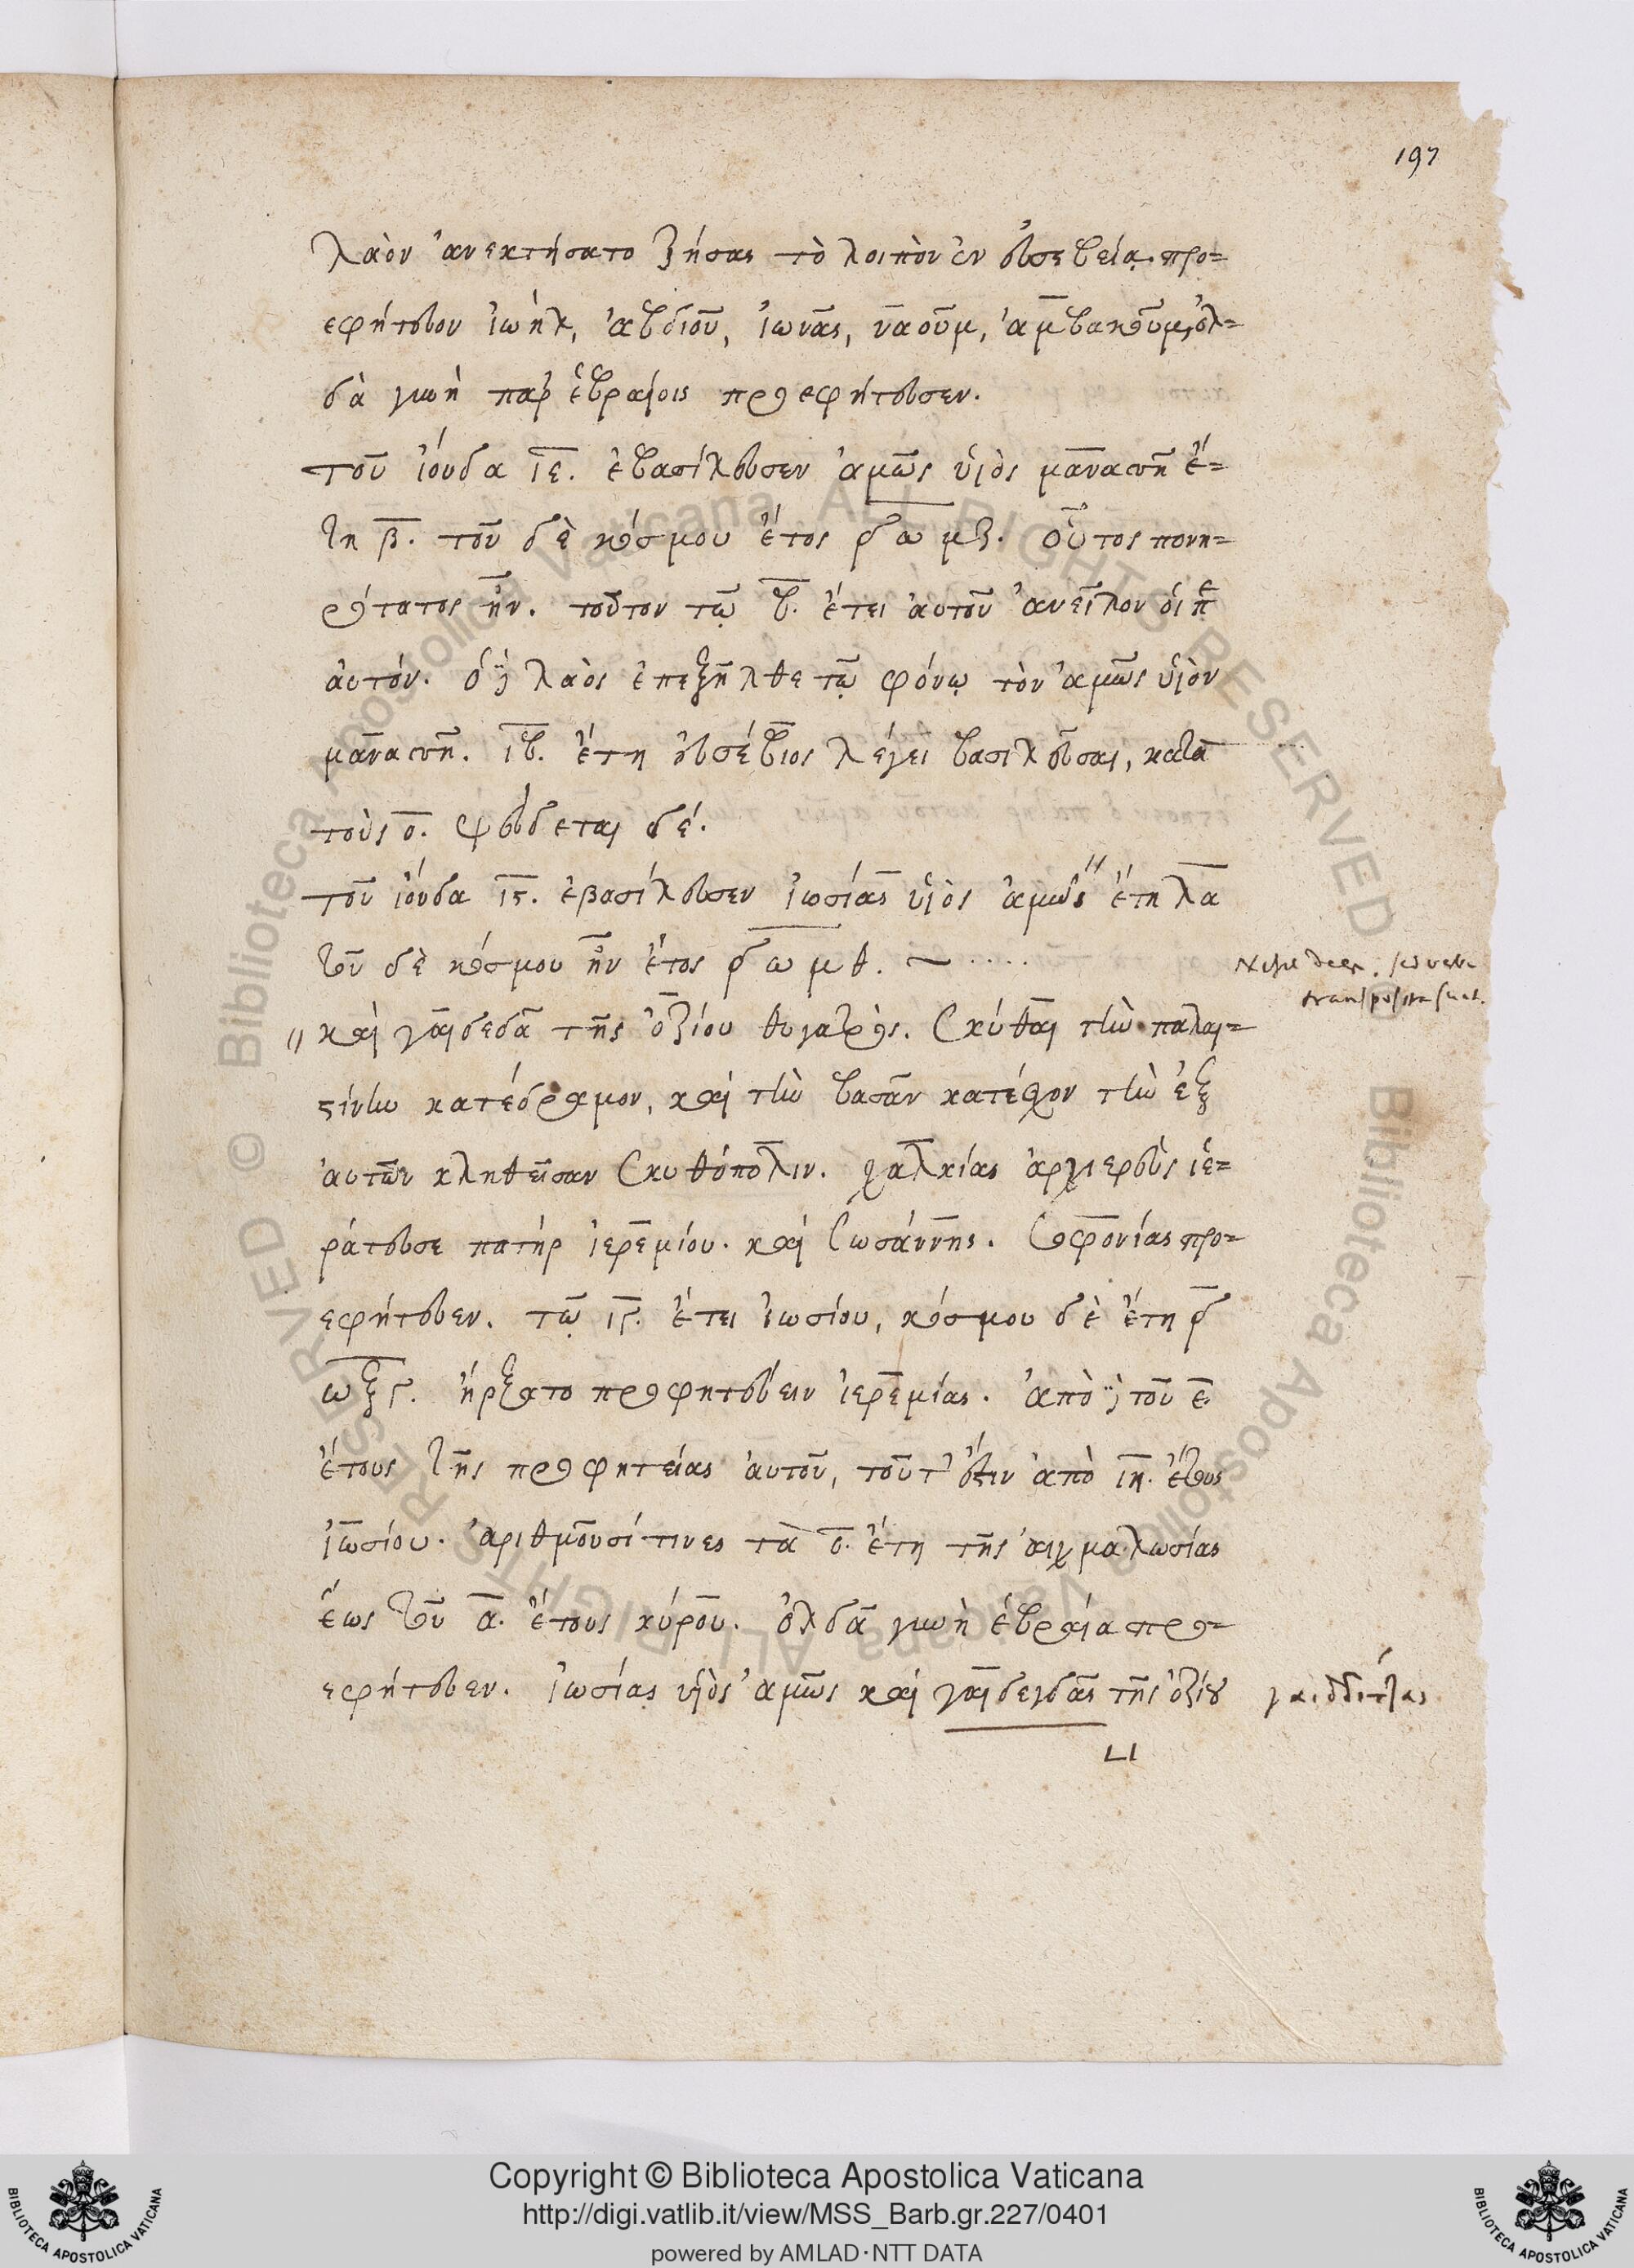 197
λαὸν ἀνεκτήσατο ζήσας τὸ λοιπὸν ἐν εὐσεβείᾳ. προ=
εφήτευον ἰωὴλ, ἀβδιοῦ, ἰωνᾶς, ναοῦμ, ἀμβακοῦμ, ὀλ=
δὰ γυνὴ παρ' ἑβραίοις προεφήτευσεν.
τοῦ ἰούδα ιε. ἐβασίλευσεν ἀμῶς ὑιὸς μανασσῆ ἔ=
τη β. τοῦ δὲ κόσμου ἔτος ͵δωμζ. οὗτος πονη=
ρότατος ἦν. τοῦτον τῷ β. ἔτει αὐτοῦ ἀνεῖλον οἱ π
αὐτόν. ὁ δὲ λαὸς ἐπεξῆλθε τῷ φόνῳ τὸν ἀμῶς ὑιὸν
μανασσῆ. ιβ. ἔτη εὐσέβιος λέγει βασιλεῦσαι, κατὰ
τοὺς ο. ψεύδεται δέ.
τοῦ ἰούδα ις. ἐβασίλευσεν ἰωσίας ὑιὸς ἀμὼς // ἔτη λα
τοῦ δὲ κόσμου ἦν ἔτος ͵δωμθ. ~ ....
// καὶ γαιδεδὰ τῆς ὀζίου θυγατρός. Σκύθαι τὴν παλαι=
στίνην κατέδραμον, καὶ τὴν βασὰν κατέσχον τὴν ἐξ
αὐτῶν κληθεῖσαν Σκυθόπολιν. χαλκίας ἀρχιερεὺς ἱε=
ράτευσε πατὴρ ἰερεμίου. καὶ Σωσάννης. Σοφονίας προ=
εφήτευεν. τῷ ιγ. ἔτει ἰωσίου, κόσμου δὲ ἔτη ͵δ
ωξγ. ἤρξατο προφητεύειν ἰερεμίας. ἀπὸ δὲ τοῦ ε.
ἔτους τῆς προφητείας αὐτοῦ, τοῦτ' ἔστιν ἀπὸ ιη. ἔτους
ἰωσίου. ἀριθμοῦσί τινες τὰ ο. ἔτη τῆς αἰχμαλωσίας
ἕως τοῦ α. ἔτους κύρου. ὀλδὰ γυνὴ ἑβραία προ=
εφήτευεν. ἰωσίας ὑιὸς ἀμῶς καὶ γαιδεγδᾶς τῆς ὀζίου
Copyright © Biblioteca Apostolica Vaticana
http://digi.vatlib.it/view/MSS_Barb.gr.227/0401
powered by AMLAD·NTT DATA
BIBLIOTECA APOSTOLICA VATICANA
BIBLIOTECA APOSTOLICA VATICANA
Biblioteca Apostolica Vaticana ALL RIGHTS RESERVED ©
Biblioteca Apostolica Vaticana ALL RIGHTS RESERVED ©